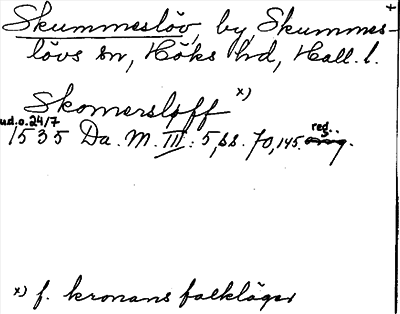 Skummeslöv, by, Skummes-
lövs sn, Höks hd, Hall. l.
Skomersloff x)
u.d.o. 24/7
1535 Da. M. III: 5, ss. 70, 145. reg.
x) f. kronans falkläger